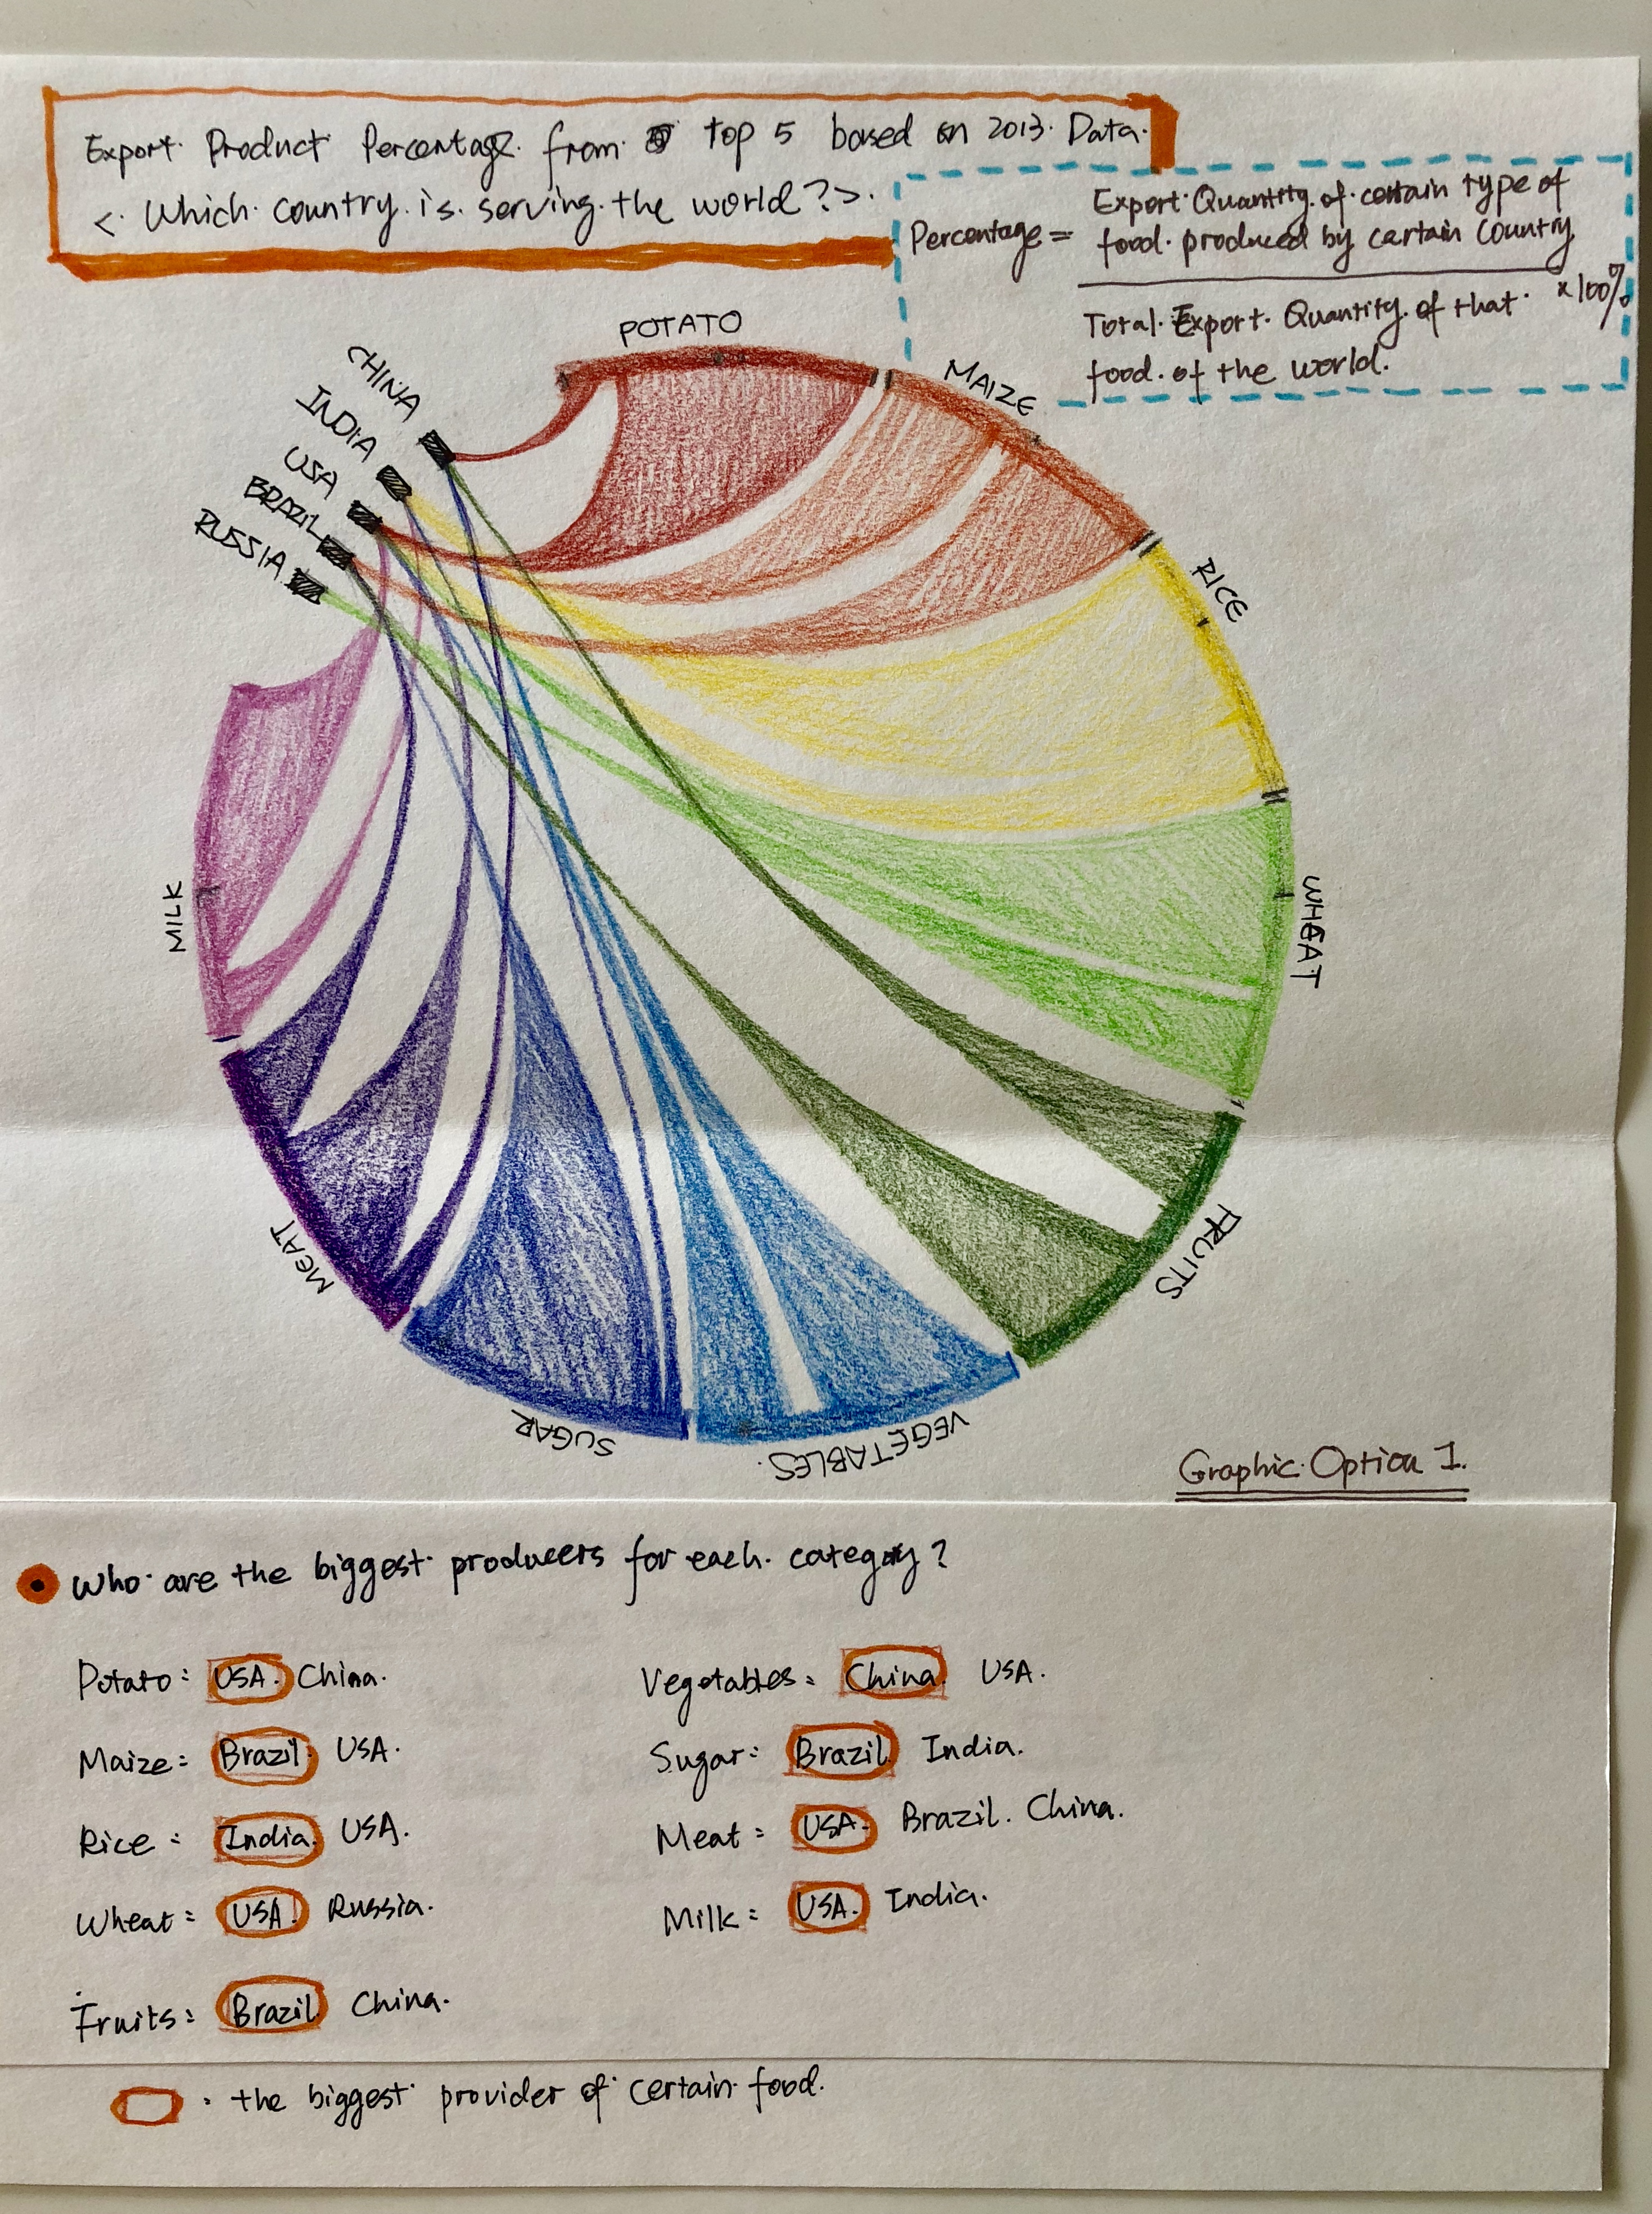 Export Product Percentage from top 5 based on 2013 Data.
< Which country is serving the world? >.
Percentage =
Export Quantity of certain type of
food produced by certain country
Total Export Quantity of that
food of the world.
x 100%
POTATO
MAIZE
RICE
WHEAT
FRUITS
VEGETABLES.
SUGAR
MEAT
MILK
CHINA
INDIA
USA
BRAZIL
RUSSIA
Graphic Option 1.
Who are the biggest producers for each category?
Potato: USA. China.
Maize: Brazil. USA.
Rice: India. USA.
Wheat: USA. Russia.
Fruits: Brazil. China.
Vegetables: China. USA.
Sugar: Brazil. India.
Meat: USA. Brazil. China.
Milk: USA. India.
: the biggest provider of certain food.